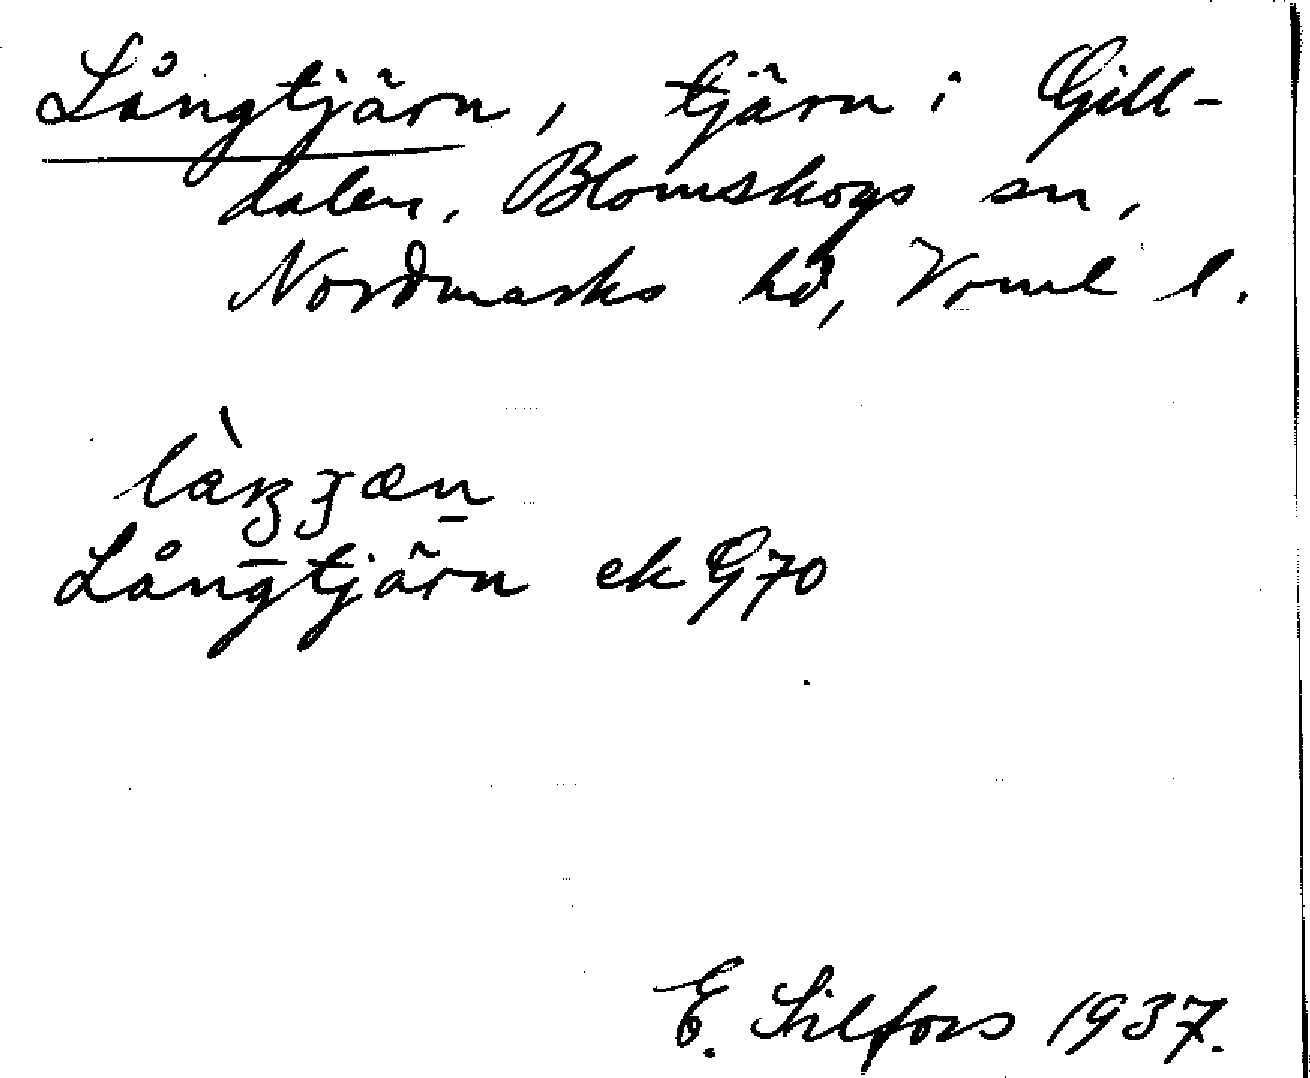 Långtjärn, tjärn i Gill-
dalen, Blomskogs sn,
Nordmarks hd, Vrml l.
Långtjärn ek G70
E. Silfors 1937.